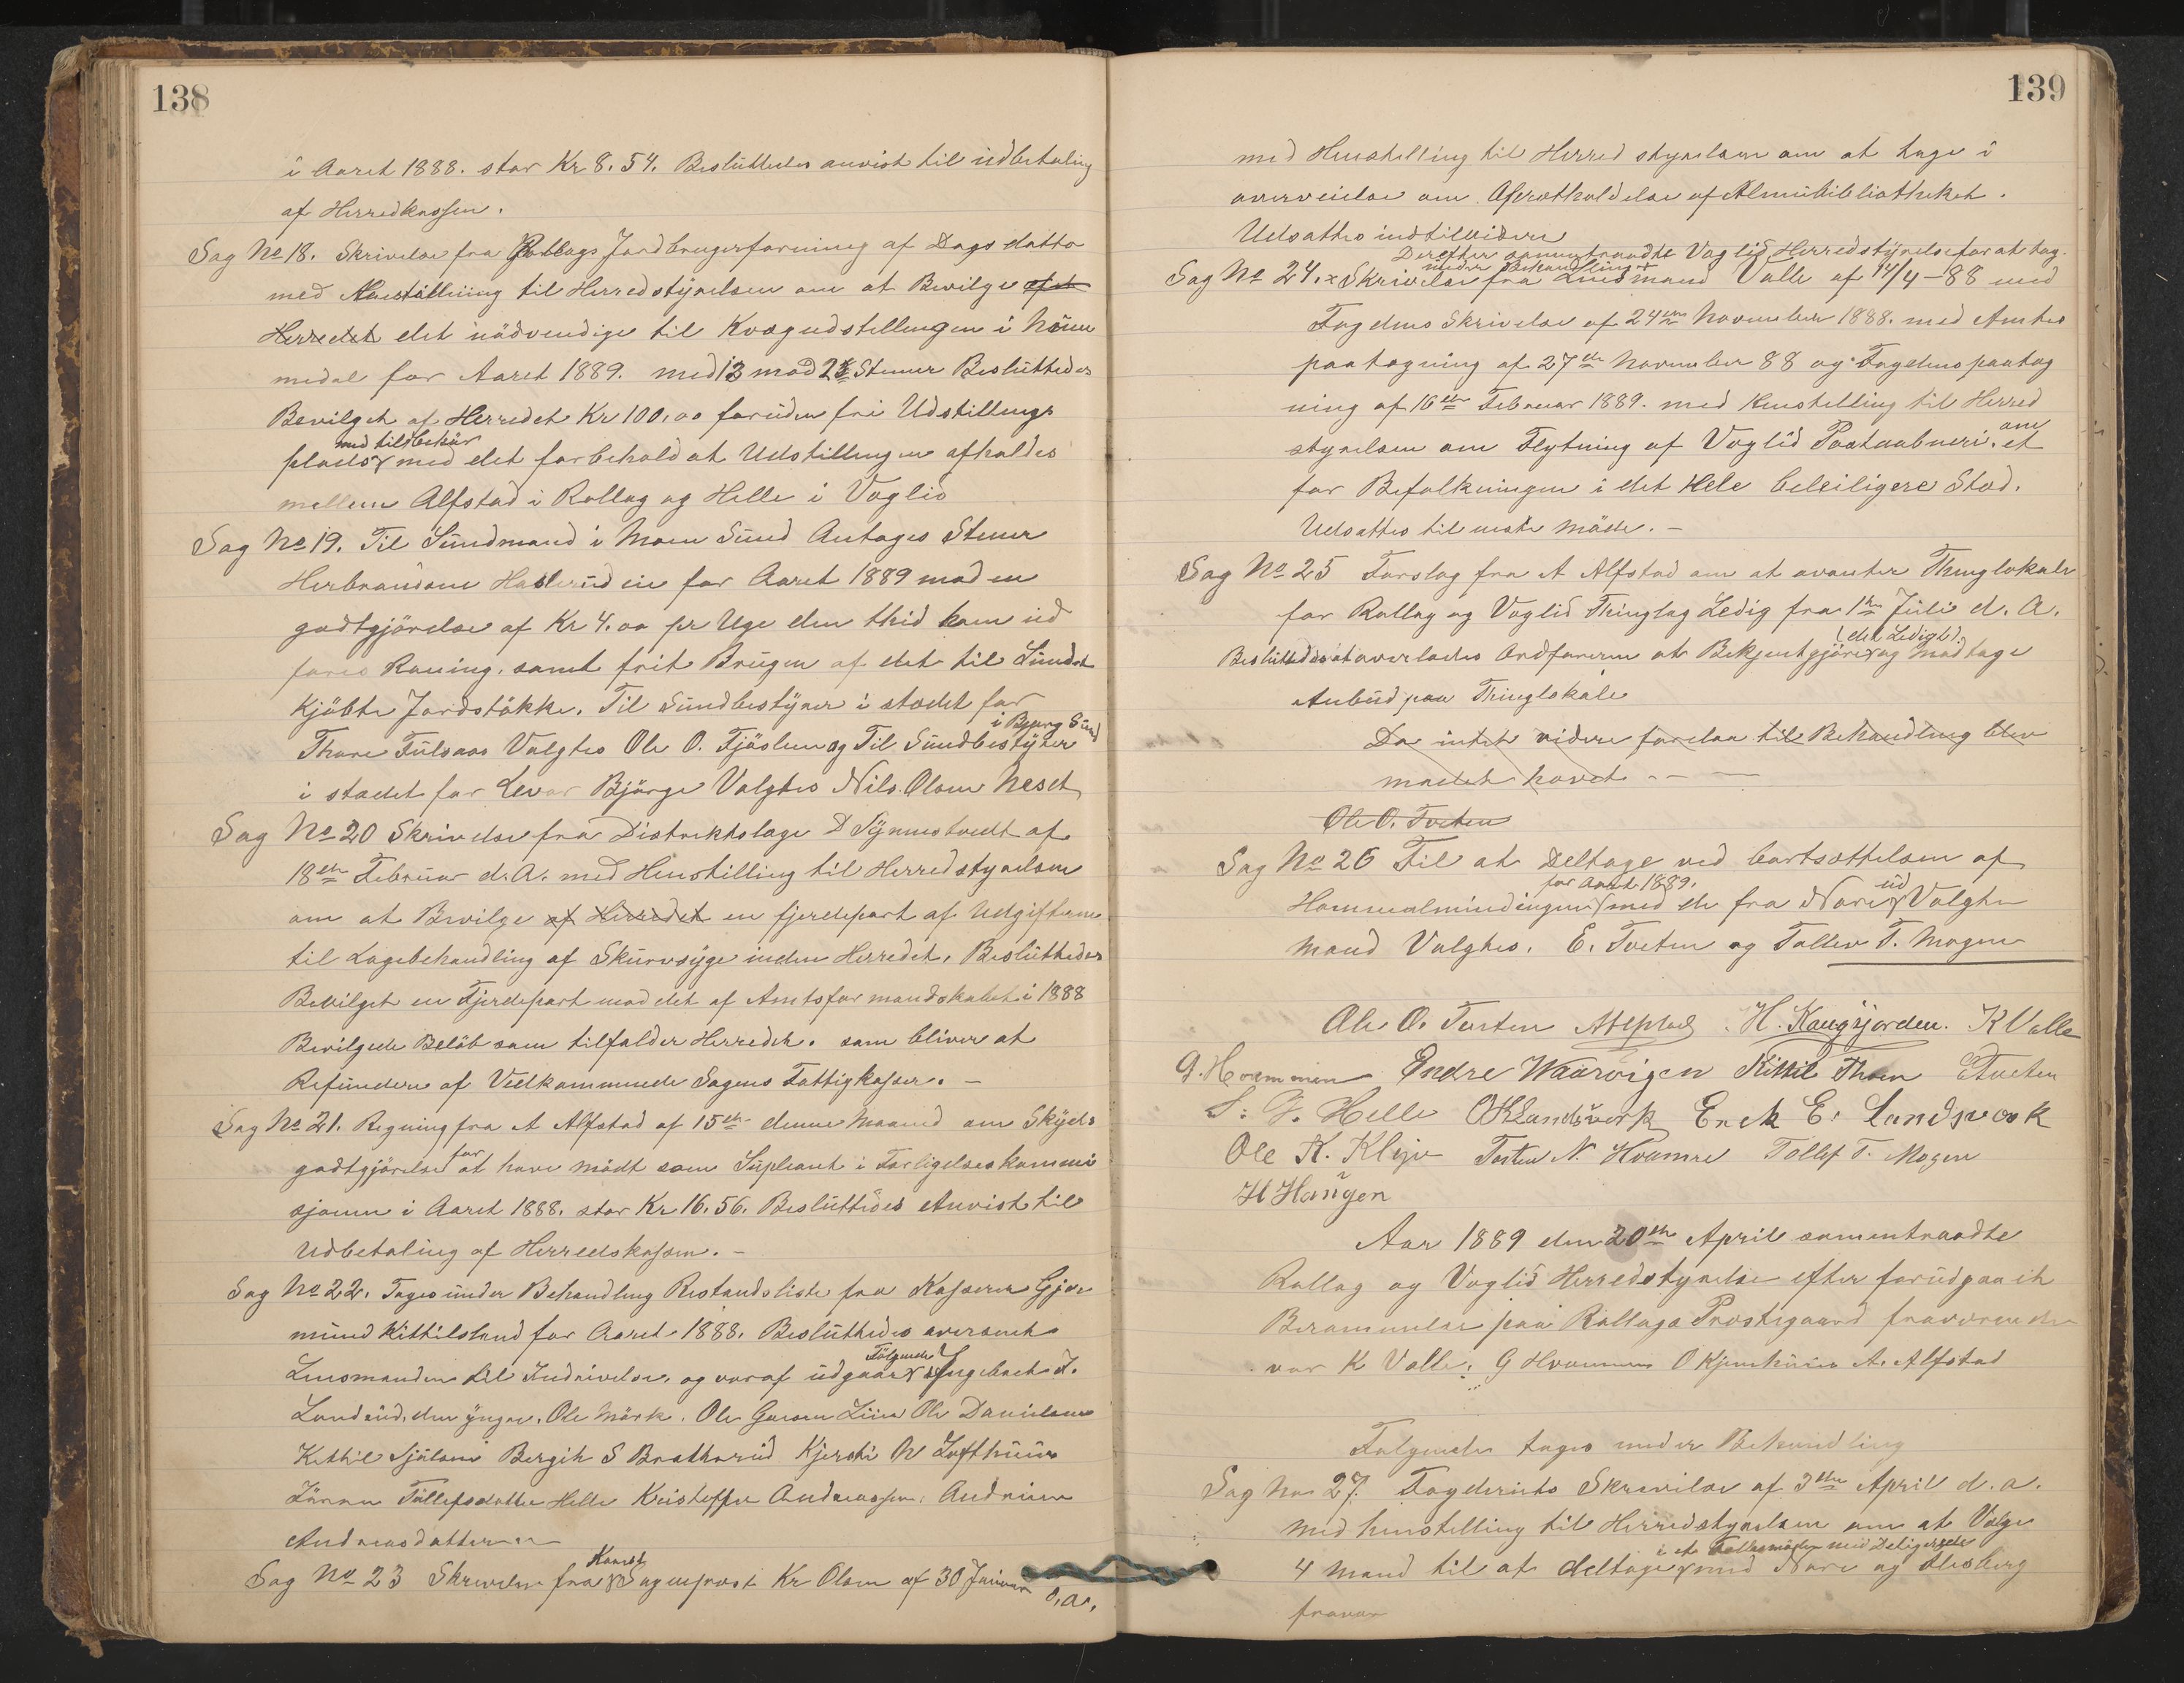 138
i Aaret 1888. stor Kr 8.54. Besluttedes anvist til udbetaling
af Herredkassen.
Sag No 18. Skrivelse fra Rollags Jordbrugerforening af Dags datto
med Henstilling til Herredstyrelsen om at Bevilge af
Herredet det nödvendige til Kvægudstillingen i Nume
medal for Aaret 1889. med 13 mod 2 Stemer Besluttedes
Bevilget af Herredet Kr 100,00 foruden fri Udstillings
med tilbehör
plads med det forbehold at Udstillingen afholdes
mellem Alfstad i Rollag og Helle i Veglid
Sag No 19. Til Sundmand i Moen Sund Antages Stener
Herbrandsen Haslerudeie for Aaret 1889 mod en
godtgjörelse af Kr 4.00 pr Uge den thid kom ud
fores Roning. samt frit Brugen af det til Sundet
Kjöbte Jordstökke. Til Sundbestyrer i stedet for
i Bjørge Sund
Thore Fulsaas Valgtes Ole O. Fjöslien og Til Sundbestyrer
i stedet for Levor Bjørge Valgtes Nils Olsen Neset
Sag No 20 Skrivelse fra Distriktslæge D Tynnestvedt af
18de Februar d.A. med Henstilling til Herredstyrelsen
om at Bevilge af Herredet en fjerdepart af Udgifterne
til Lægebehandling af Skurvsyge inden Herredet. Besluttedes
Bevilget en Fjerdepart mod det af Amtsformandskabet i 1888
Bevilgede Belöb som tilfalder Herredet. som bliver at
Refundere af Vedkommende Sogens Fattigkasser. –
Sag No 21. Regning fra A Alfstad af 15de denne Maaned om Skyds
for
godtgjörelse at have mödt som Supleant i Forligelseskommi
sjonen i Aaret 1888. stor Kr 16.56. Besluttedes Anvist til
Udbetaling af Herredskassen. –
Sag No 22. Toges under Behandling Restandsliste fra Kasserer Gjer
mund Kittilsland for Aaret 1888. Besluttedes oversendt
Følgende
Lensmanden til Inddrivelse. og voraf udgaar Ingebret J.
Landrud. den yngre. Ole Mörk. Ole Danielsen
Kettil Bergit S Bratterud Kjersti N Lofthuus
Tollefsdatter Helle Kristoffer Andreassen.
Andreasdatter
Kanst
Sag No 23 Skrivelse fra Sognepræst Kr Olsen af 30 Januar
d.a.
139
med Henstilling til Herredstyrelsen om at tage i
overveielse om Opretholdelse af Almuebibliotheket.
Udsattes indtil videre
Derefter sammentraadte Veglid Herredstyrelse for at tage
under Behandling
Sag No 24. Skrivelse fra Lensmand Valle af 14/4–88 med
Fogdens Skrivelse af 24de November 1888. med Amtes
paategning af 27de November 88 og Fogdens paateg
ning af 16de Februar 1889. med Henstilling til Herred
om
styrelsen om Flytning af Veglid Postaabneri. et
for Befolkningen i det Hele beleiligere Sted.
Udsattes til neste Möde. –
Sag No 25 Forslag fra A Alfstad om at Thinglokale
for Rollag og Veglid Thinglag Ledig fra 1ste Juli d. A.
(det Ledigt)
Besluttedes at overlades Ordföreren at Bekjentgjöre og modtage
Anbud paa Thinglokale
Da intet videre forelaa til Behandling blev
mödet hævet – –
Ole O. Tveten
Sag No 26 Til at Deltage ved bortsættelsen af
for Aaret 1889. ud
Hammalmindingen med de fra Nore Valgte
Mænd Valgtes. E. Tveten og Tollev T. Mogen
Ole O. Tveten AAlfstad H. Haugjorden. K Valle
G. Hvammen Endre Waarvigen Kittil Thoen ETveten
S: G. Helle OKLandsverk Erik E. Landsverk
Ole K. Kleje Torsten N. Hvamre Tollef T. Mogen
H Haugen
Aar 1889 den 20de April sammentraadte
Rollag og Veglid Herredstyrelse efter forudgaaet
Berammelse paa Rollags Prestegaard fraværende
var K Valle. G Hvammen O Kjemhuus A. Alfstad
Følgende toges under Behandling
Sag No 27. Fogderiets Skrivelse af 3de April d.a.
med henstilling til Herredstyrelsen om at Vælge
i et Fællesmöde med Deligerede
4 Mænd til at deltage med Nore og Flesberg
fravær